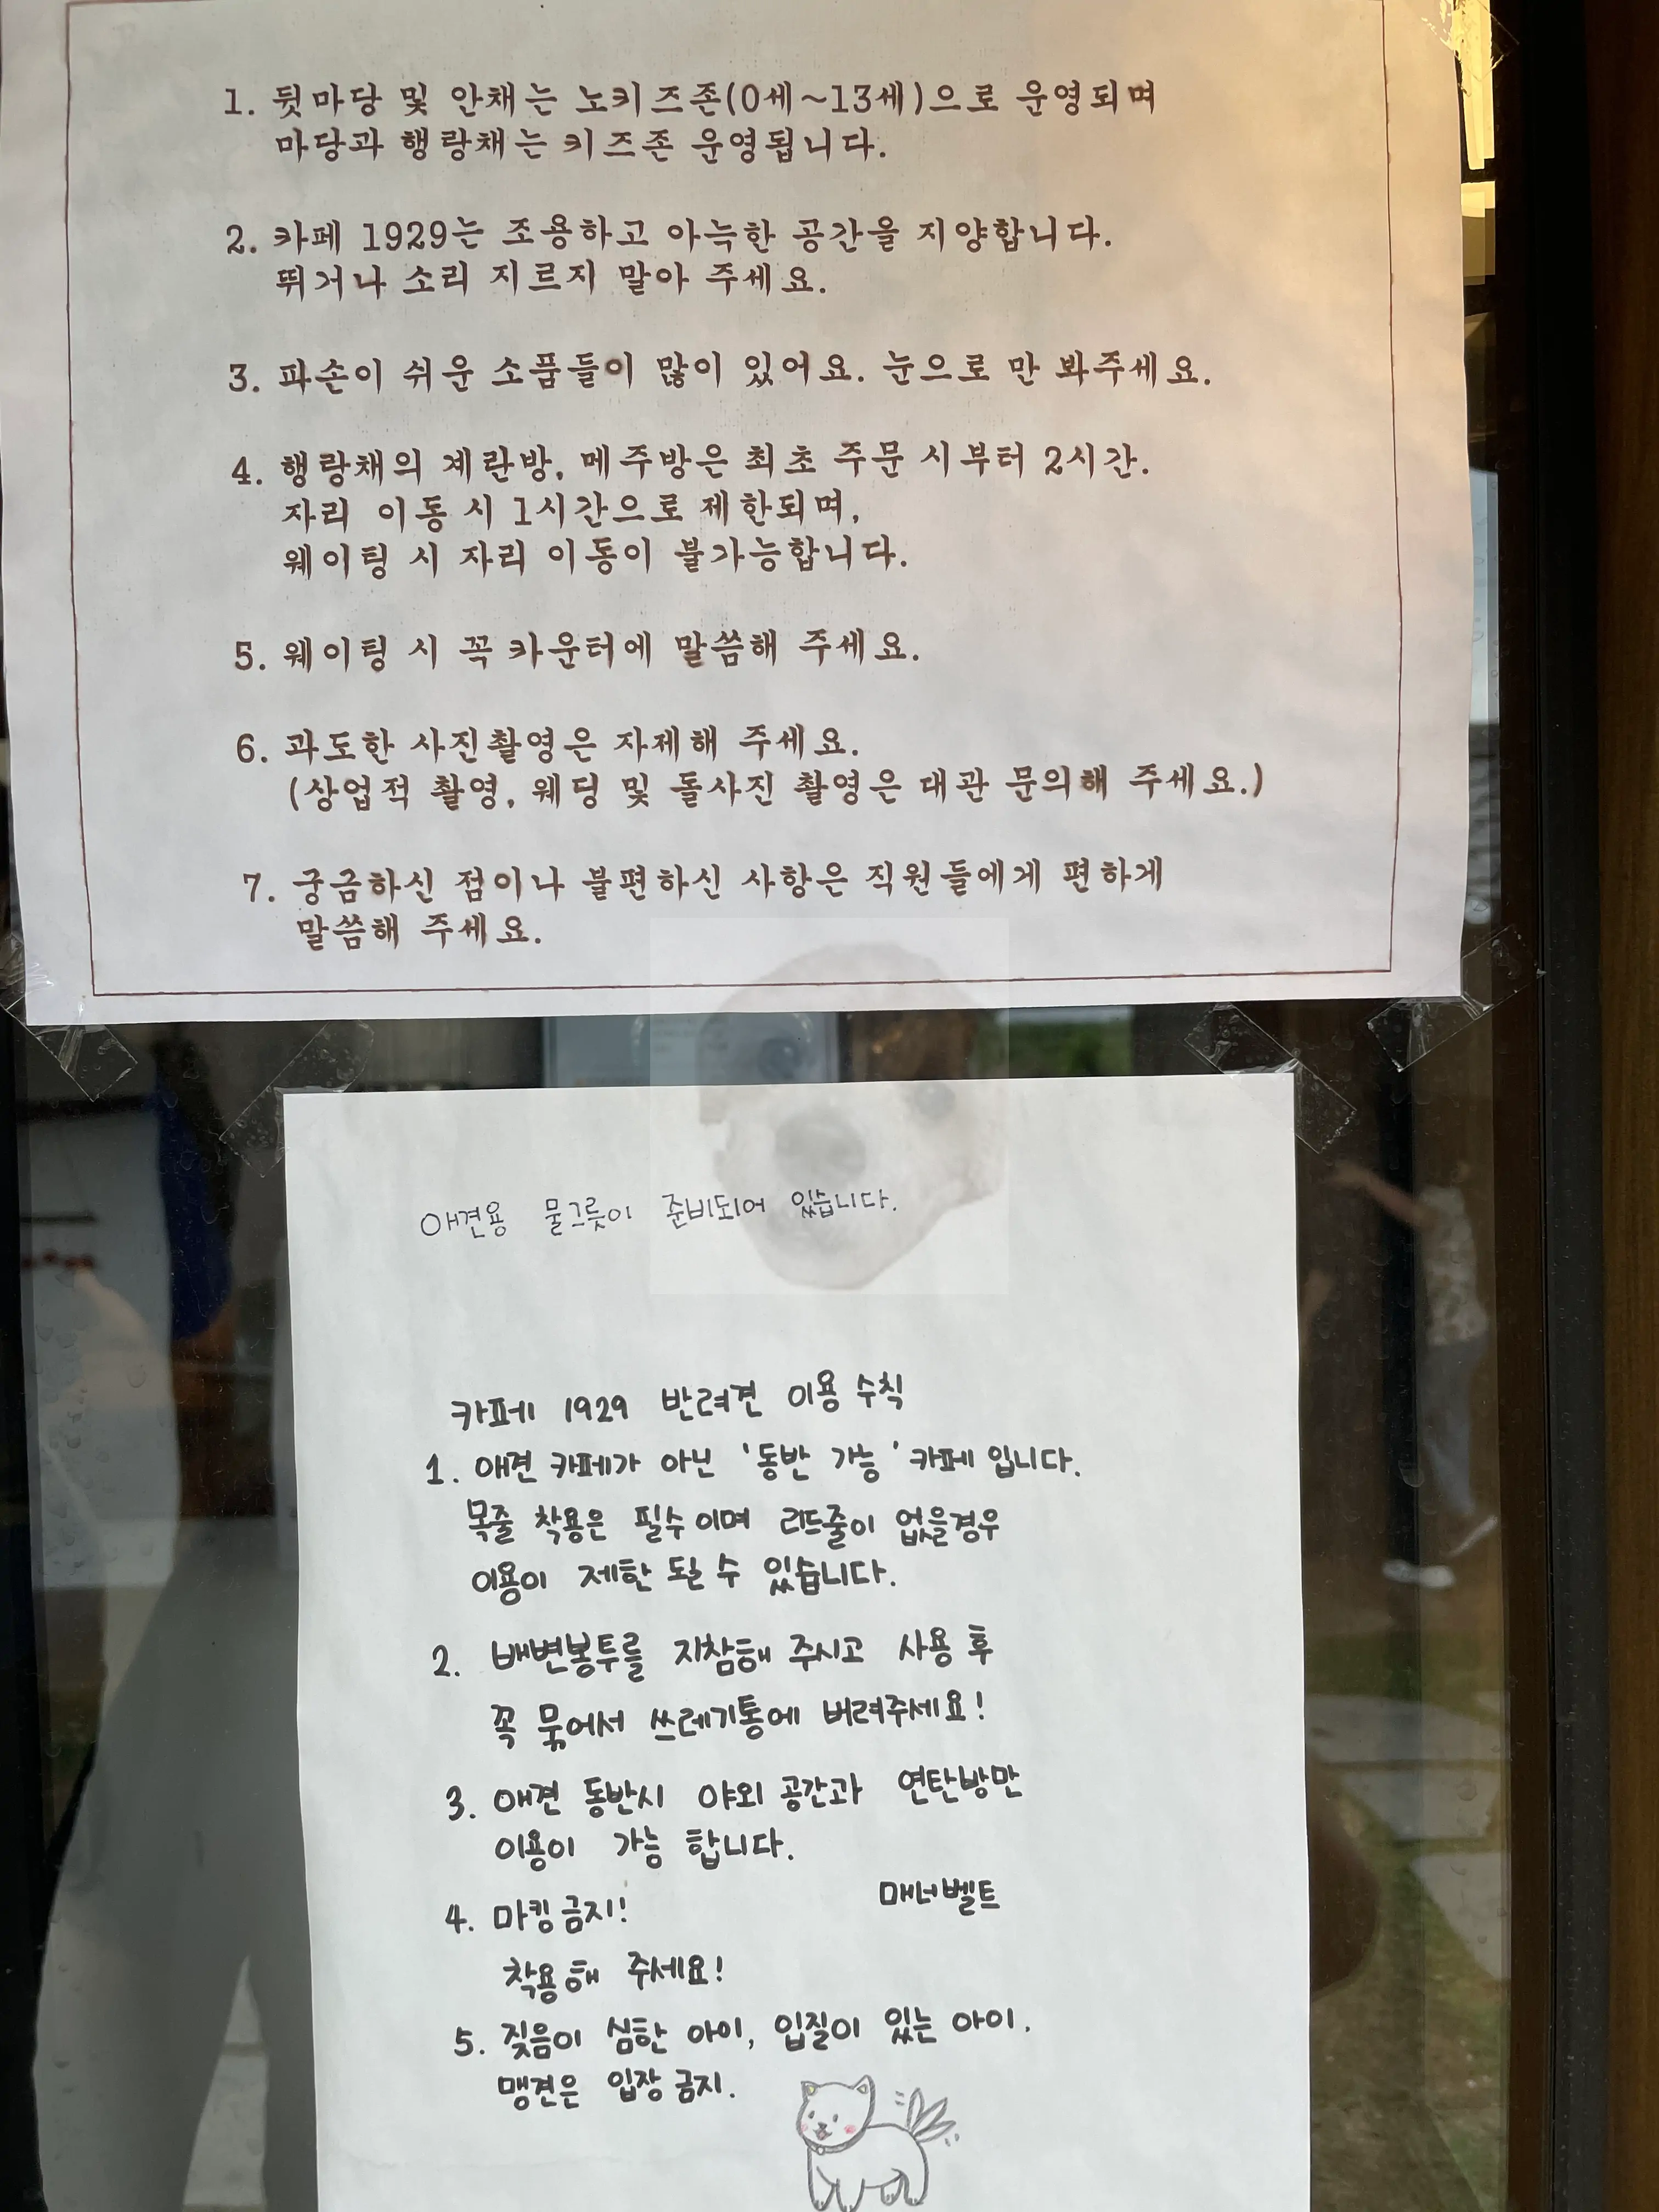 1. 뒷마당 및 안채는 노키즈존(0세~13세)으로 운영되며
마당과 행랑채는 키즈존 운영됩니다.
2. 카페 1929는 조용하고 아늑한 공간을 지양합니다.
뛰거나 소리 지르지 말아 주세요.
3. 파손이 쉬운 소품들이 많이 있어요. 눈으로 만 봐주세요.
4. 행랑채의 계란방, 메주방은 최초 주문 시부터 2시간.
자리 이동 시 1시간으로 제한되며,
웨이팅 시 자리 이동이 불가능합니다.
5. 웨이팅 시 꼭 카운터에 말씀해 주세요.
6. 과도한 사진촬영은 자제해 주세요.
(상업적 촬영, 웨딩 및 돌사진 촬영은 대관 문의해 주세요.)
7. 궁금하신 점이나 불편하신 사항은 직원들에게 편하게
말씀해 주세요.
애견용 물그릇이 준비되어 있습니다.
카페 1929 반려견 이용 수칙
1. 애견 카페가 아닌 '동반 가능' 카페 입니다.
목줄 착용은 필수이며 리드줄이 없을경우
이용이 제한 될 수 있습니다.
2. 배변봉투를 지참해 주시고 사용 후
꼭 묶어서 쓰레기통에 버려주세요!
3. 애견 동반시 야외 공간과 연탄방만
이용이 가능 합니다.
4. 마킹금지! 매너벨트
착용해 주세요!
5. 짖음이 심한 아이, 입질이 있는 아이.
맹견은 입장 금지.